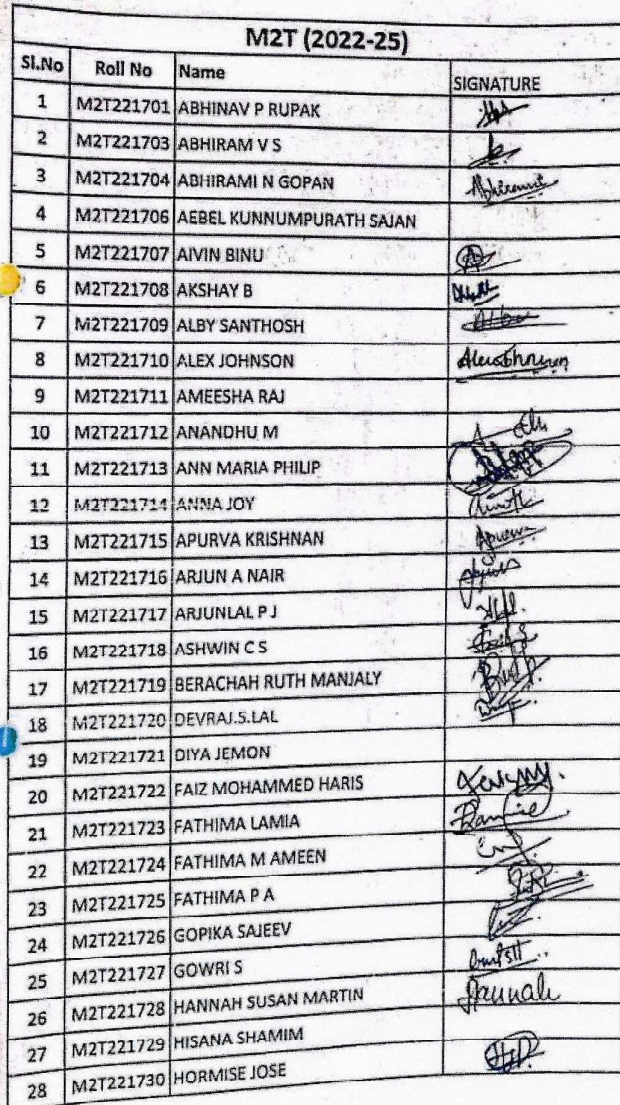 M2T (2022-25)
Sl.No Roll No Name SIGNATURE
1 M2T221701 ABHINAV P RUPAK
2 M2T221703 ABHIRAM V S
3 M2T221704 ABHIRAMI N GOPAN Abhirami
4 M2T221706 AEBEL KUNNUMPURATH SAJAN
5 M2T221707 AIVIN BINU
6 M2T221708 AKSHAY B
7 M2T221709 ALBY SANTHOSH
8 M2T221710 ALEX JOHNSON
9 M2T221711 AMEESHA RAJ
10 M2T221712 ANANDHU M
11 M2T221713 ANN MARIA PHILIP
12 M2T221714 ANNA JOY
13 M2T221715 APURVA KRISHNAN Apurva
14 M2T221716 ARJUN A NAIR
15 M2T221717 ARJUNLAL P J
16 M2T221718 ASHWIN C S
17 M2T221719 BERACHAH RUTH MANJALY
18 M2T221720 DEVRAJ.S.LAL
19 M2T221721 DIYA JEMON
20 M2T221722 FAIZ MOHAMMED HARIS
21 M2T221723 FATHIMA LAMIA
22 M2T221724 FATHIMA M AMEEN
23 M2T221725 FATHIMA P A
24 M2T221726 GOPIKA SAJEEV
25 M2T221727 GOWRI S
26 M2T221728 HANNAH SUSAN MARTIN Hannah
27 M2T221729 HISANA SHAMIM
28 M2T221730 HORMISE JOSE